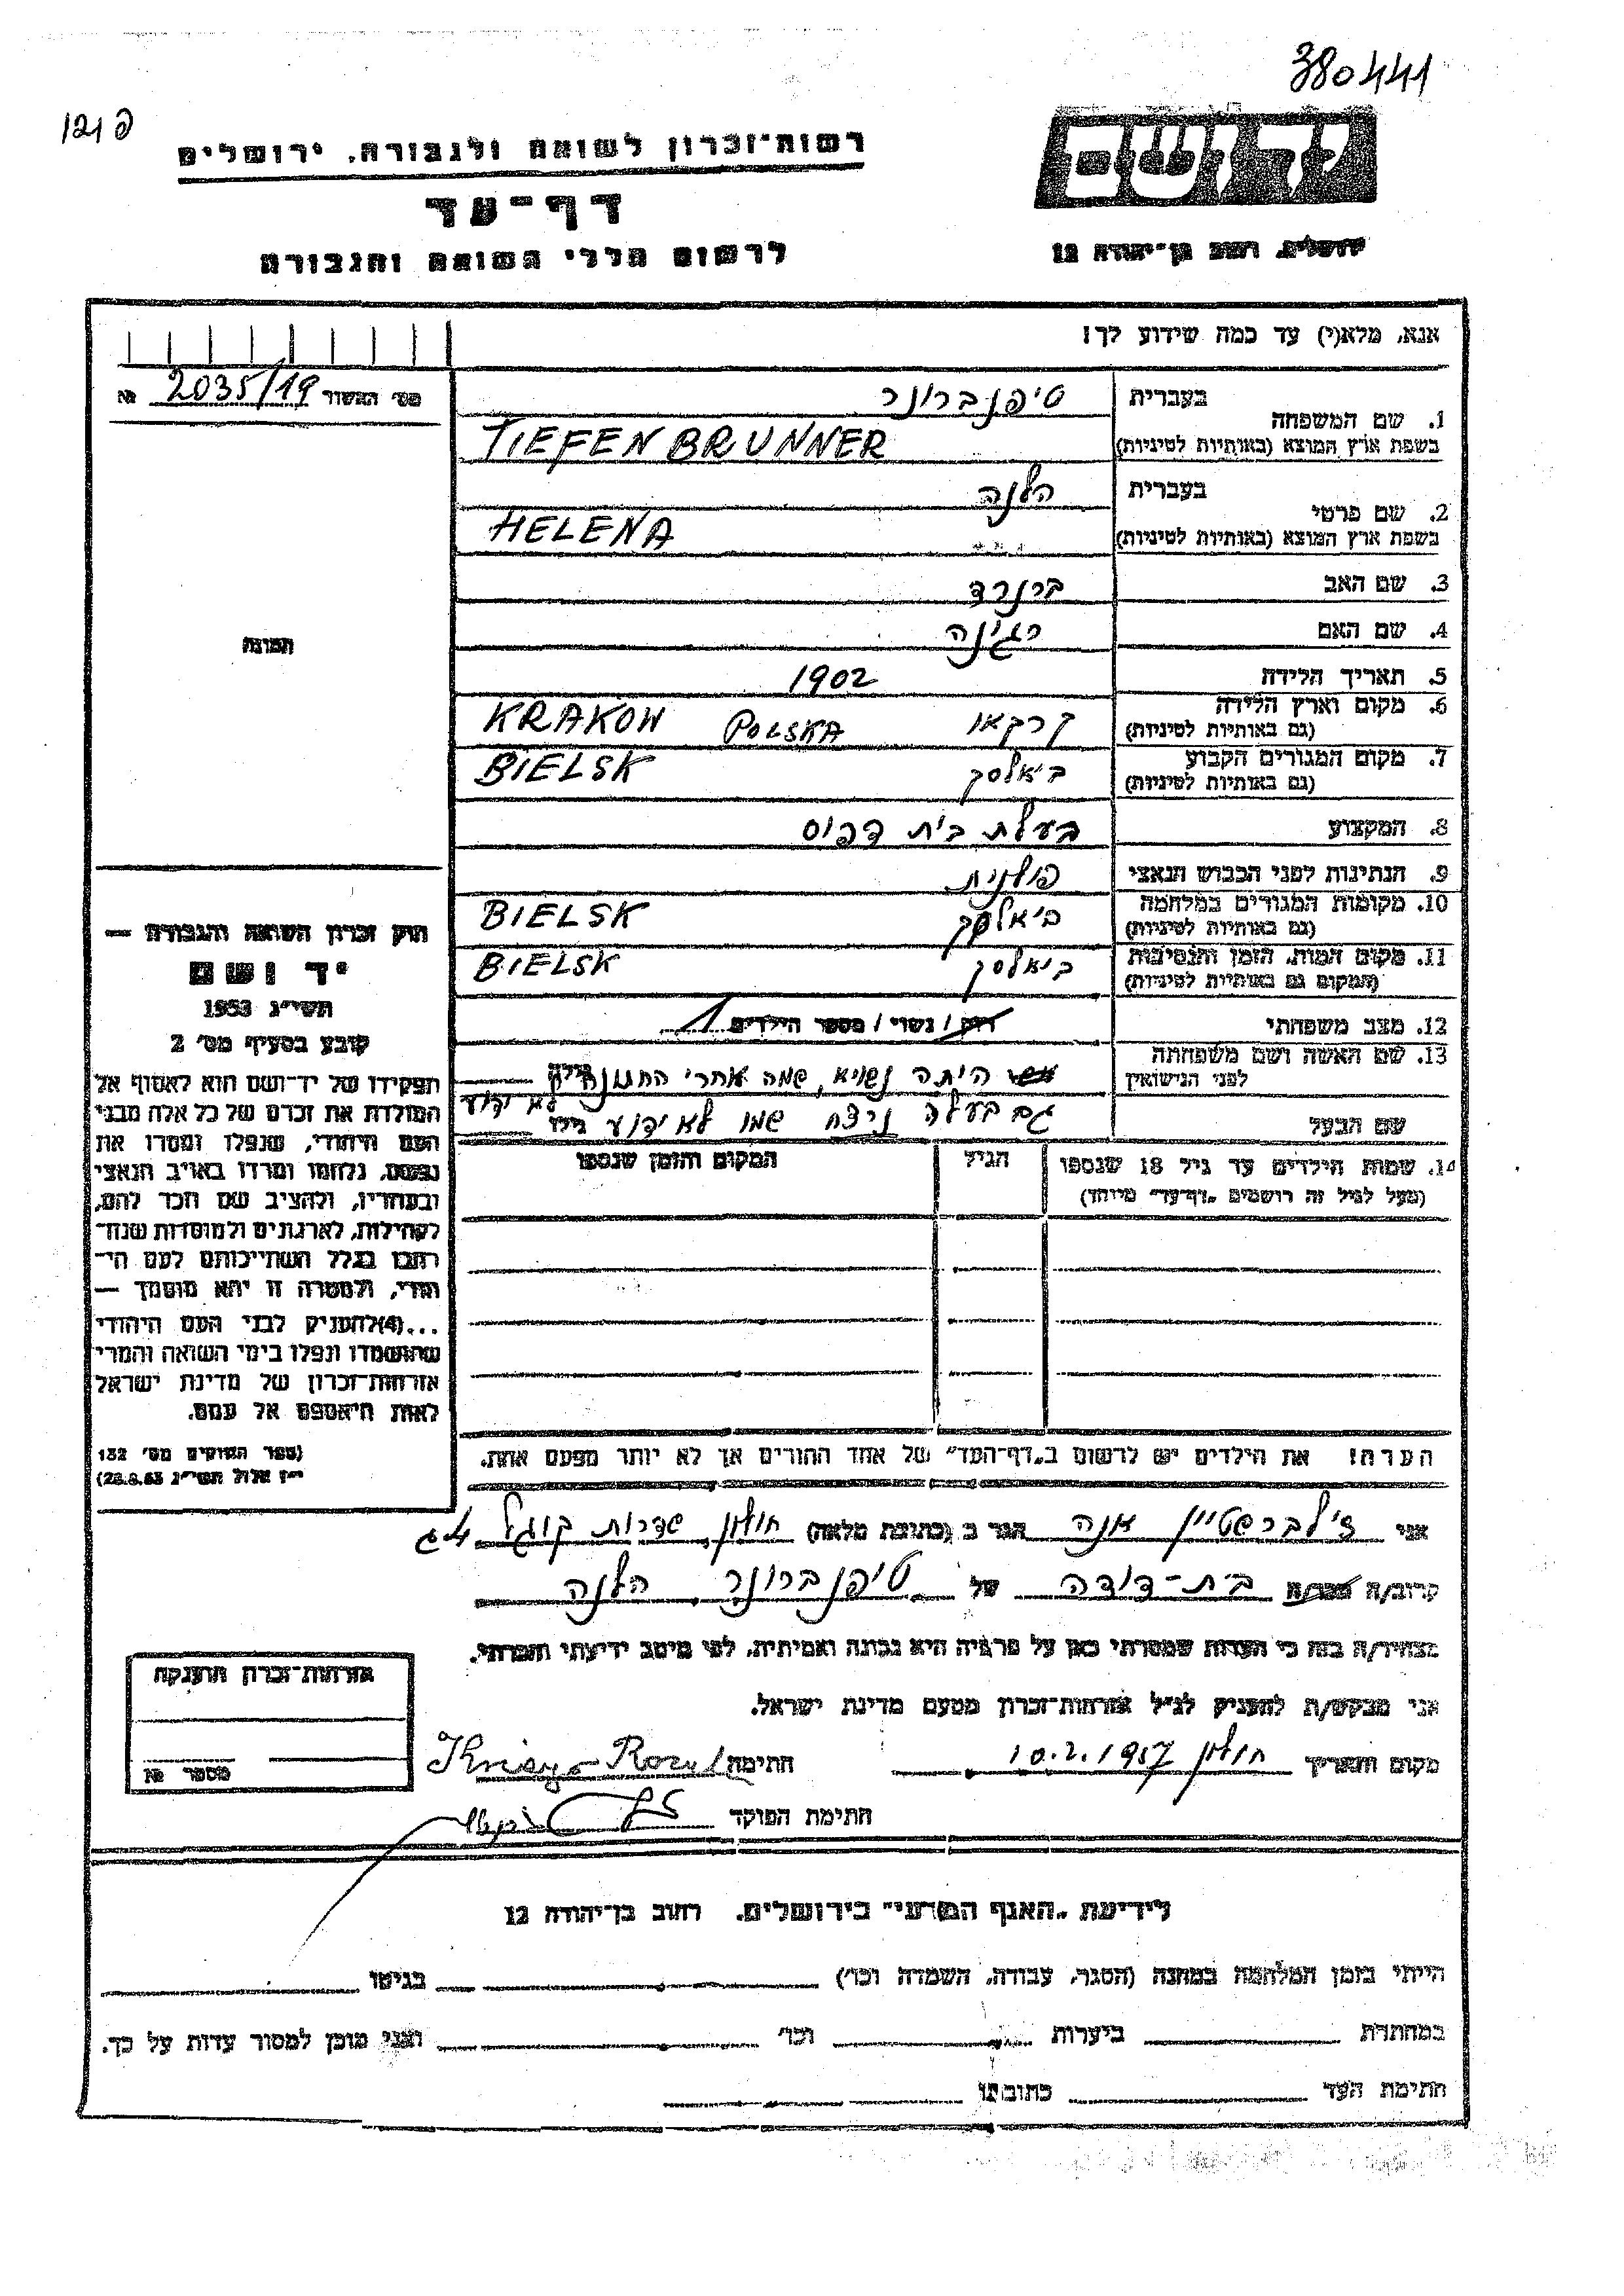 380441
פ 121
רשות־זכרון לשואה ולגבורה, ירושלים
דף־עד
לרשום חללי השואה והגבורה
יד ושם
ירושלים, רחוב בן־יהודה 12
אנא, מלא(י) עד כמה שידוע לך!
מס׳ האשור 2035/19 №
1. שם המשפחה
בעברית טיפנברונר
בשפת ארץ המוצא (באותיות לטיניות) TIEFENBRUNNER
2. שם פרטי
בעברית הלנה
בשפת ארץ המוצא (באותיות לטיניות) HELENA
3. שם האב ברנרד
4. שם האם רגינה
5. תאריך הלידה 1902
6. מקום וארץ הלידה קרקאו POLSKA KRAKOW
(גם באותיות לטיניות)
7. מקום המגורים הקבוע ביאלסק BIELSK
(גם באותיות לטיניות)
8. המקצוע בעלת בית דפוס
9. הנתינות לפני הכבוש הנאצי פולנית
10. מקומות המגורים במלחמה ביאלסק BIELSK
(גם באותיות לטיניות)
11. מקום המות, הזמן והנסיבות ביאלסק BIELSK
(המקום גם באותיות לטיניות)
12. מצב משפחתי רוק / נשוי / מספר הילדים 1
13. שם האשה ושם משפחתה
לפני הנישואין
היתה נשויא, שמה אחרי החתונה לא ידוע
שם הבעל גם בעלה ניצח שמו לא ידוע גילו
14. שמות הילדים עד גיל 18 שנספו
(מעל לגיל זה רושמים „דף־עד״ מיוחד)
הגיל
המקום והזמן שנספו
הערה! את הילדים יש לרשום ב„דף־העד״ של אחד ההורים אך לא יותר מפעם אחת.
תמונה
חוק זכרון השואה והגבורה —
יד ושם
תשי״ג 1953
קובע בסעיף מס׳ 2
תפקידו של יד־ושם הוא לאסוף אל
המולדת את זכרם של כל אלה מבני
העם היהודי, שנפלו ומסרו את
נפשם, נלחמו ומרדו באויב הנאצי
ובעוזריו, ולהציב שם וזכר להם,
לקהילות, לארגונים ולמוסדות שנח־
רבו בגלל השתייכותם לעם הי־
הודי, ולמטרה זו יהא מוסמך —
...(4) להעניק לבני העם היהודי
שהושמדו ונפלו בימי השואה והמרי
אזרחות־זכרון של מדינת ישראל
לאות היאספם אל עמם.
(ספר החוקים מס׳ 132
י״ז אלול תשי״ג 28.8.53)
אני זילברשטיין אנה הגר ב (כתובת מלאה) חולון, שדרות קוגל 4ג
קרוב/ה מכר/ה בת-דודה של טיפנברונר הלנה
מצהיר/ה בזה כי העדות שמסרתי כאן על פרטיה היא נכונה ואמיתית, לפי מיטב ידיעתי והכרתי.
אני מבקש/ת להעניק לנ״ל אזרחות־זכרון מטעם מדינת ישראל.
מקום ותאריך חולון 10.2.1957 חתימה
חתימת הפוקד
אזרחות־זכרון הוענקה
מספר №
לידיעת „האגף המדעי״ בירושלים, רחוב בן־יהודה 12
הייתי בזמן המלחמה במחנה (הסגר, עבודה, השמדה וכו׳) בגיטו
במחתרת ביערות וכו׳ ואני מוכן למסור עדות על כך.
חתימת העד כתובתו